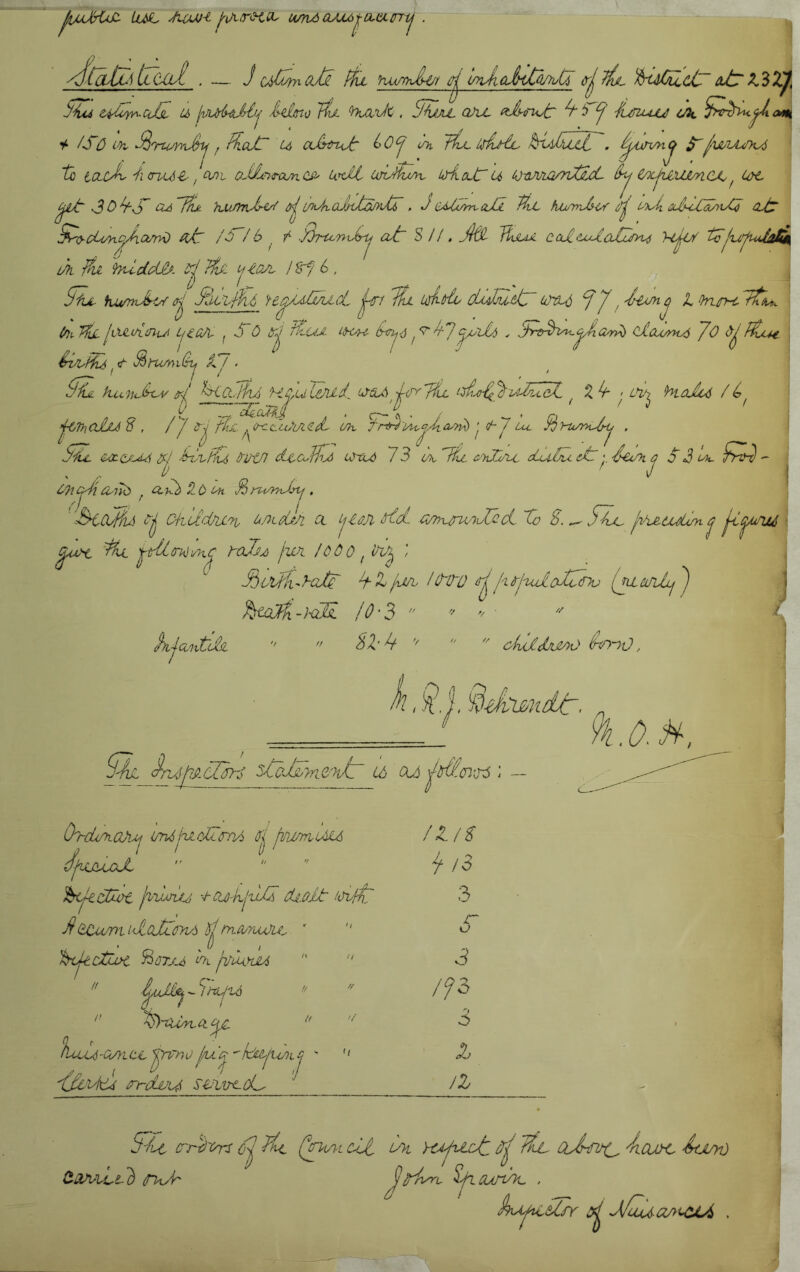 public use have proved unsatisfactory.
Statistical. — I estimate the number of inhabitants of the District at 232[?].
This estimate is probably below the mark. There are about 459 houses in Frodingham
+ 150 in Brumby, that is about 609 in the whole District. Giving 5 persons
to each house, an allowance well within what is warranted by experience, we
get 3045 as the number of inhabitants. I estimate the number of inhabitants at
Frodingham at 1516 + Brumby at 811. All these calculations refer to population
in the middle of the year 1896.
The number of Births registered for the whole district was 97, being 2 more than
in the previous year, 50 of these were boys, + 47 girls. Frodingham claims 70 of these
births, + Brumby 27.
The number of Deaths registered was, for the whole District, 24; viz males 16,
females 8. 17 of the deaths occurred in Frodingham; + 7 in Brumby.
The excess of births over deaths was 73 in the entire district; being 53 in Frod-
ingham, and 20 in Brumby.
Deaths of children under a year old amounted to 8. — The preceding figures
give the following rates per 1000, viz;
Birth-rate 42 per 1000 of population (nearly)
Death-rate 10.3 " " " "
Infantile " " 82.4 " " " children born.
M.R.J. Behrendt.
M.O.H.
The Inspectors statement is as follows: —
Ordinary inspections of premises 1218
Special " " " 413
Defective privies + ashpits dealt with 3
Accumulations of manure " " 5
Defective Boxes in privies " " 3
" Gully-Traps " " 193
" Drainage " " 3
Nuisance from pig-keeping " " 2
Clerks orders served 12
The orders of the Council in respect of the above have been
carried out John Spavin.
Inspector of Nuisances.